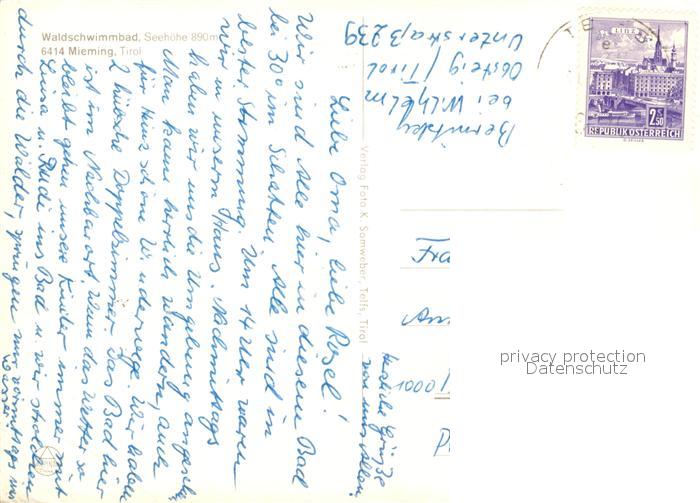 Waldschwimmbad, Seehöhe 890m
6414 Mieming, Tirol
Verlag Foto K. Somweber, Telfs, Tirol
Bernitzky
bei Wilhelm
Obsteig / Tirol
Unterstraß 239
Liebe Oma, liebe Resel!
Wir sind alle hier in diesem Bad
bei 30° im Schatten. Alle sind in
bester Stimmung. Um 14 Uhr waren
wir in unserem Haus. Nachmittags
haben wir uns die Umgebung angeseh
Man kann herrlich wandern, auch
für Heinz schöne Wanderwege. Wir haben
2 hübsche Doppelzimmer. Das Bad hier
ist im Nachbarort. Wenn das Wetter so
bleibt gehen unsere Kinder immer mit
Luisa u. Rudi ins Bad u. wir
durch die Wälder, springen nur vormittags ins
Wasser.
Herzliche Grüße
von uns allen
Fra
LINZ
2.50
REPUBLIK ÖSTERREICH
privacy protection
Datenschutz